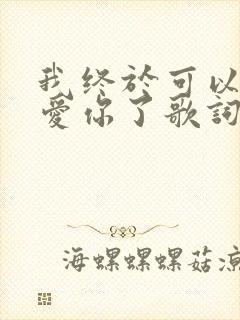 我终於可以
愛你了歌詞
海螺螺螺菇凉